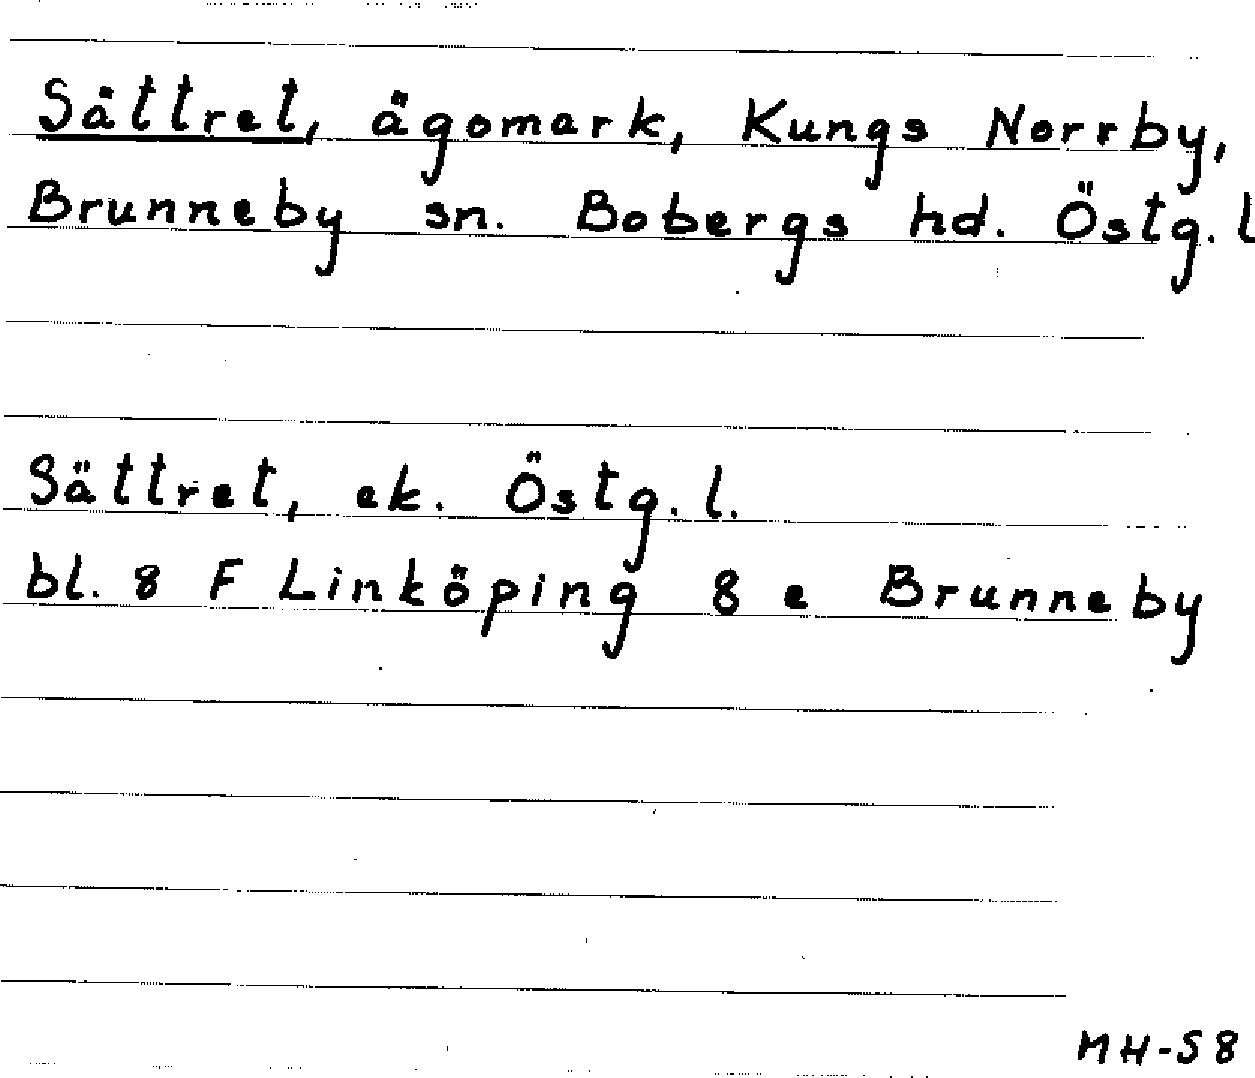 Sättret, ägomark, Kungs Norrby,
Brunneby sn. Bobergs hd. Östg. l
Sättret, ek. Östg. l.
bl. 8 F Linköping 8 e Brunneby
MH-58